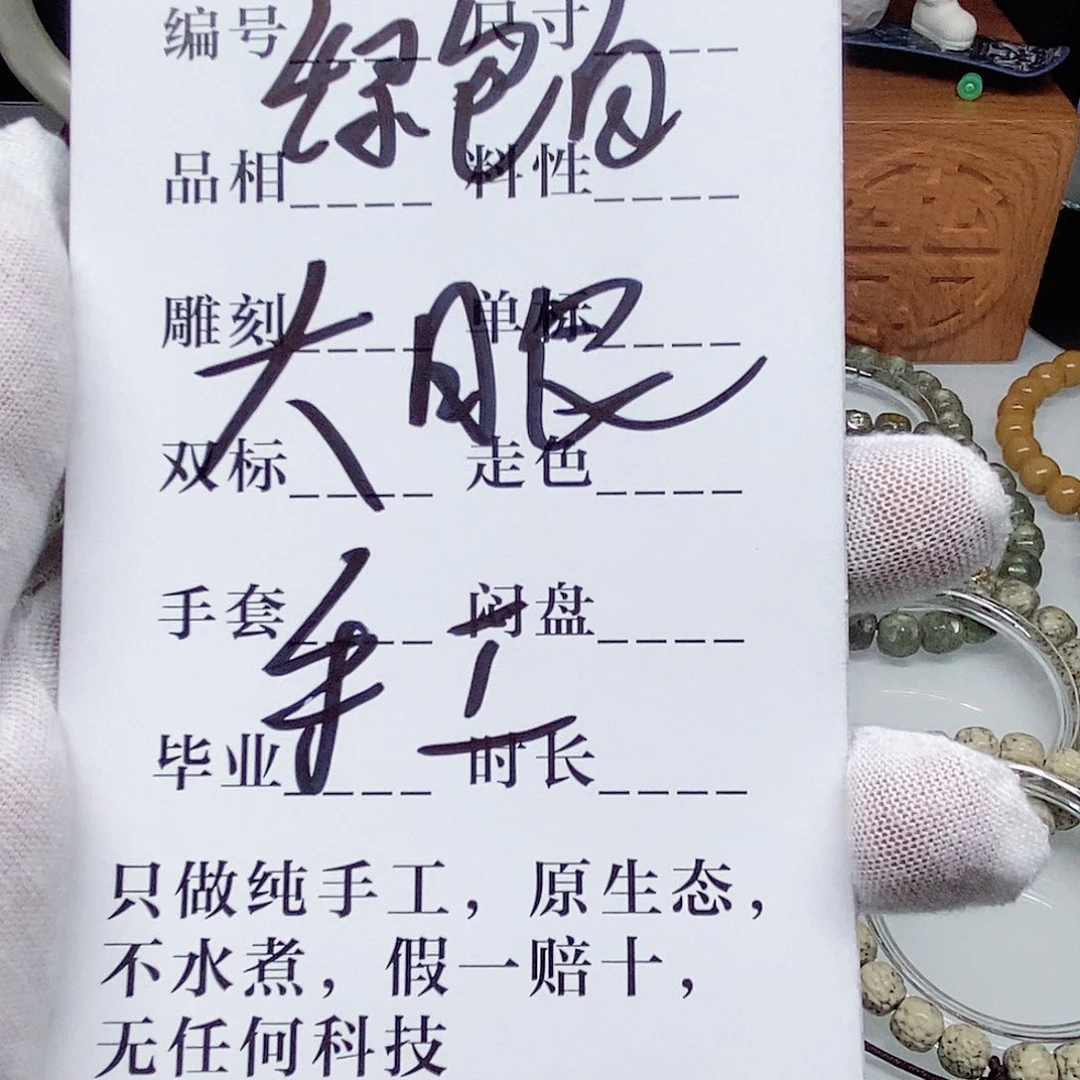 编号____尺寸____
绿色白
品相____料性____
雕刻____单标____
大眼
双标____走色____
手套____闷盘____
手工
毕业____时长____
只做纯手工，原生态，
不水煮，假一赔十，
无任何科技